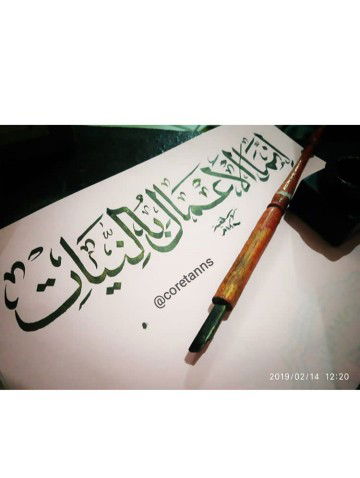 إنما الأعمال بالنيات
@coretanns
2019/02/14 12:20